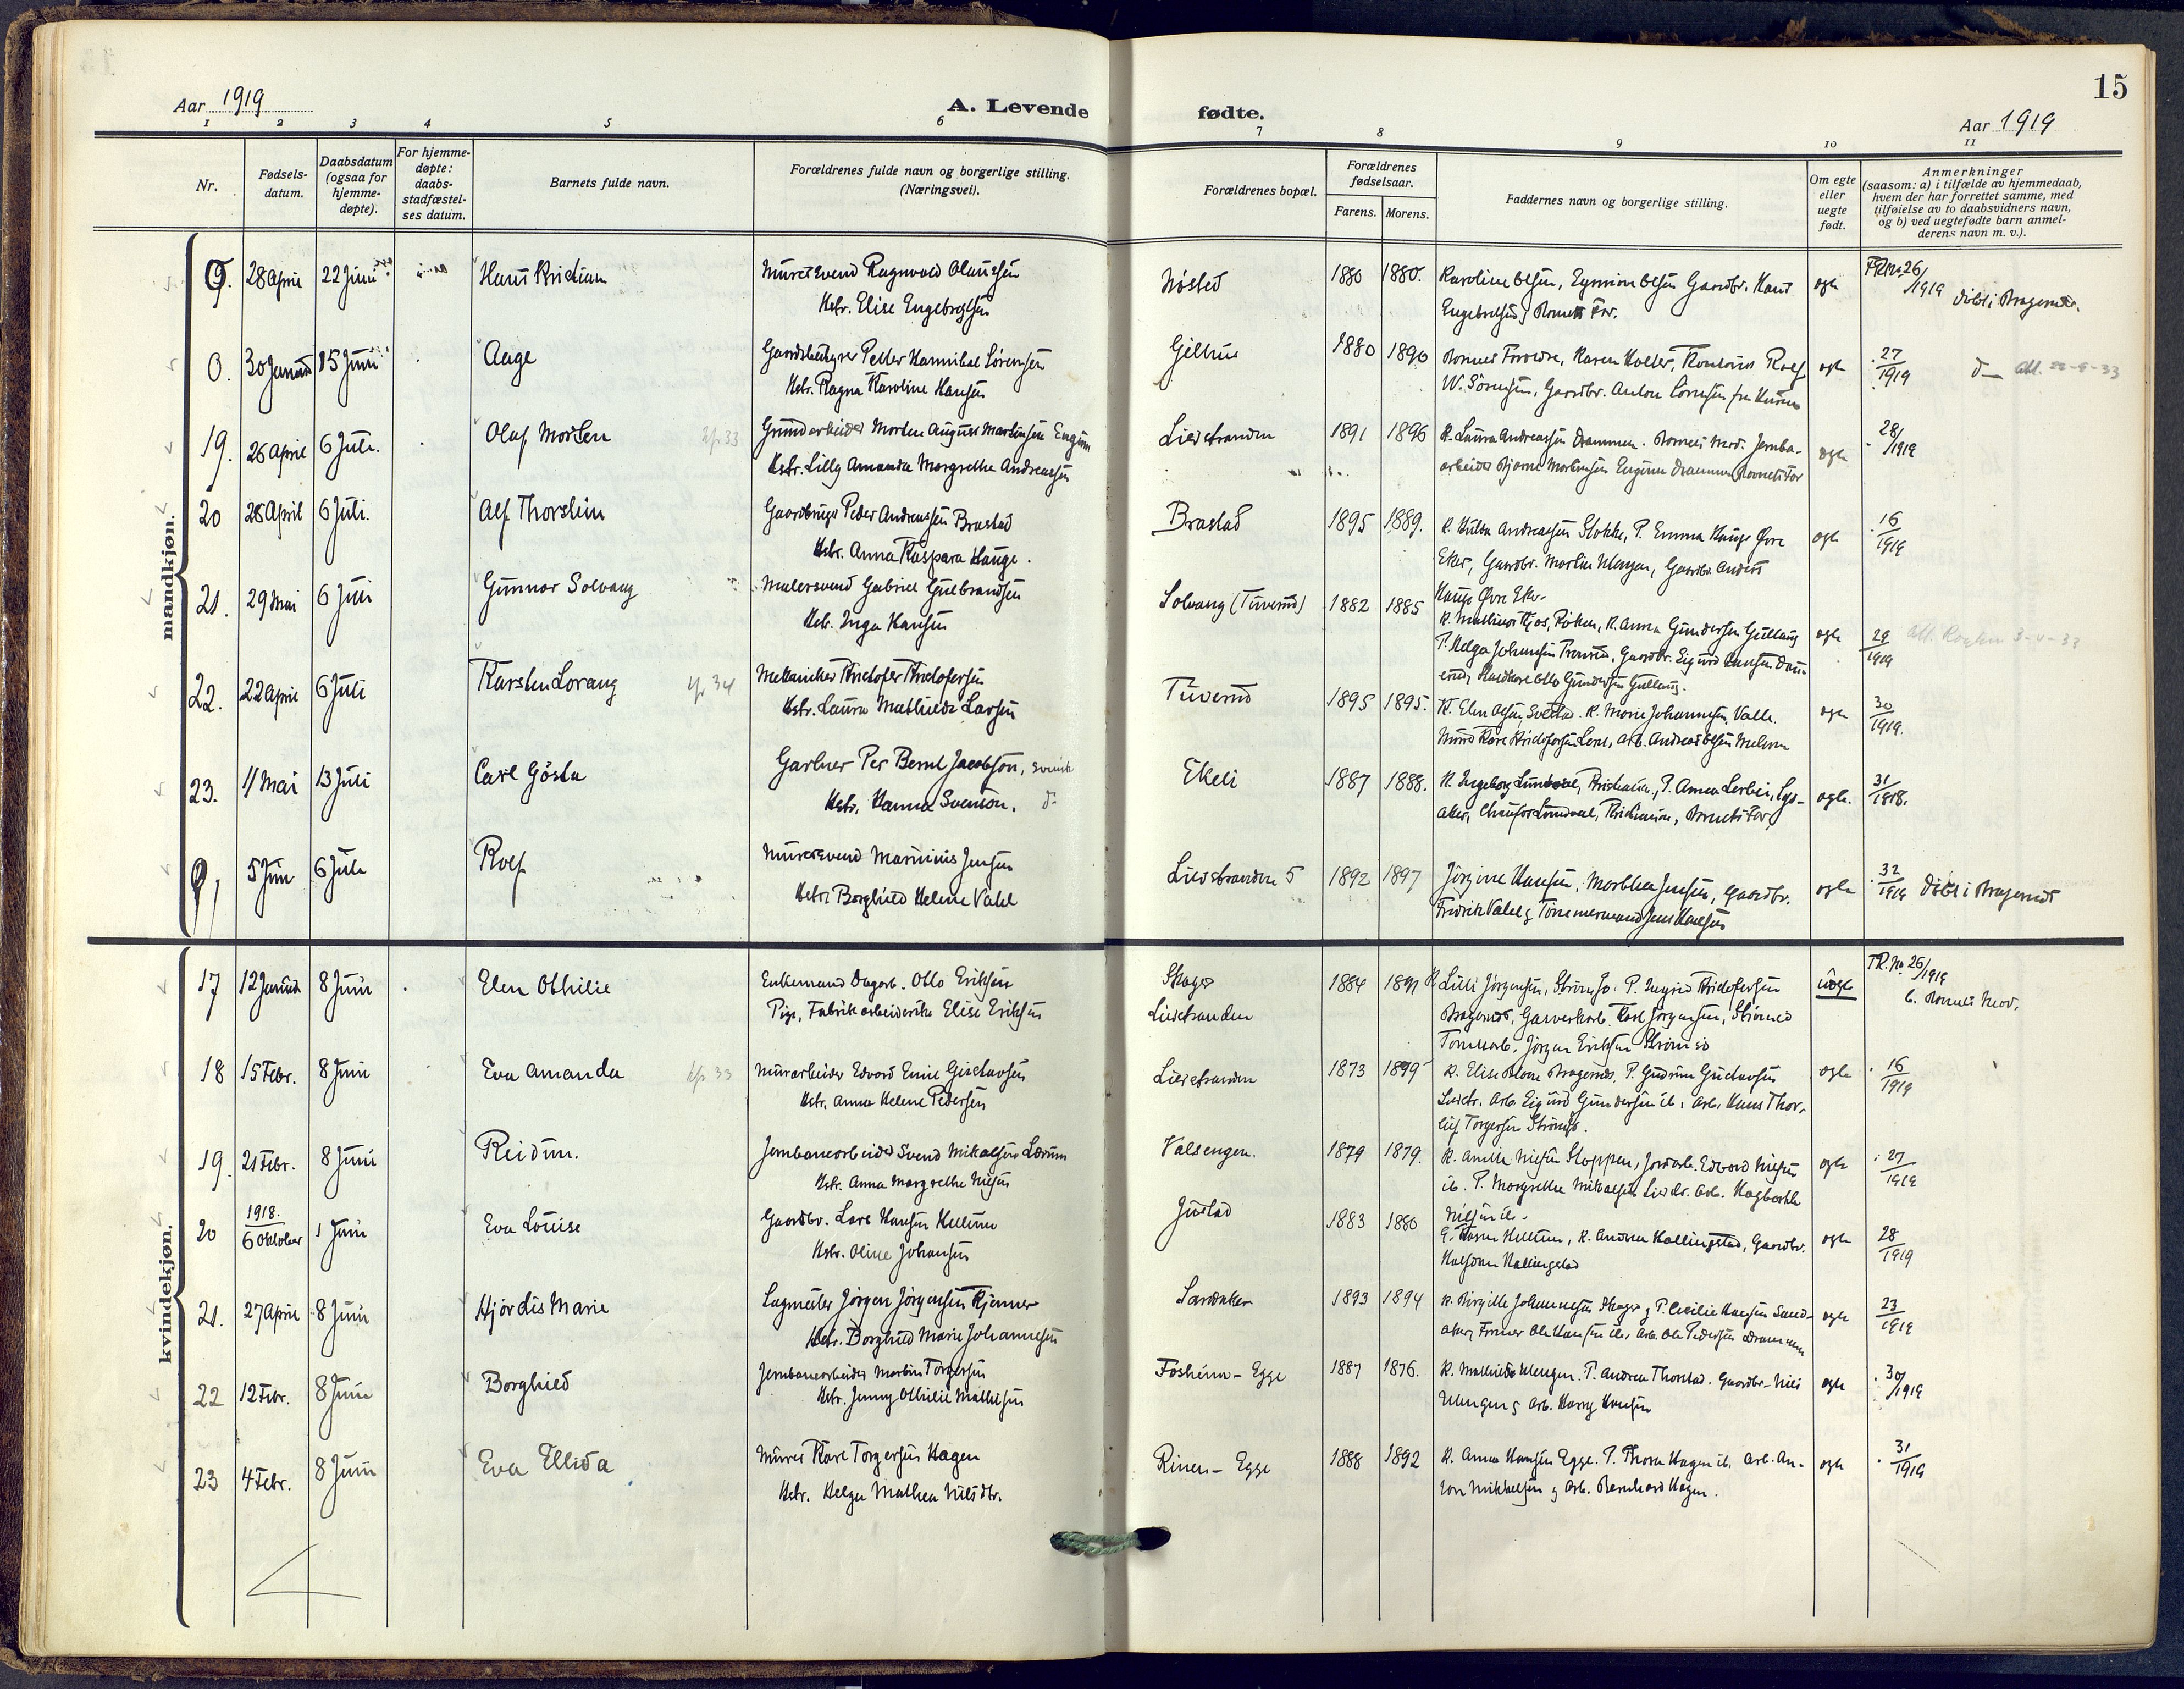 15
Aar 1919
A. Levende
fødte.
Aar 1919
1 2 3 4 5 6 7 8 9 10 11
Nr.
Fødsels-
datum.
Daabsdatum
(ogsaa for
hjemme-
døpte).
For hjemme-
døpte:
daabs-
stadfæstel-
ses datum.
Barnets fulde navn.
Forældrenes fulde navn og borgerlige stilling.
(Næringsvei).
Forældrenes bopæl.
Forældrenes
fødselsaar.
Farens. Morens.
Faddernes navn og borgerlige stilling.
Om egte
eller
uegte
født.
Anmerkninger
(saasom: a) i tilfælde av hjemmedaab,
hvem der har forrettet samme, med
tilføielse av to daabsvidners navn,
og b) ved uegtefødte barn anmel-
derens navn m. v.).
mandkjøn.
28 April 22 Juni Hans Kristian Murersvend Ragnvald Olaussen
Hstr. Elise Engebretsen
1880 1880. Karoline Olsen, Gaardbr. Hans
Engebretsen, Barnets Far.
egte
26/1919 døbt i Bragernes.
0. 30 Januar 15 Juni Aage Gaardbruger Petter Hannibal Sørensen
Hstr. Ragna Karoline Hansen
Gilhus 1880 1890 Barnets Forældre, Karen Holter, Kontorist Rolf
W. Sørensen, Gaardbr. Anton Sørensen
egte 27/1919
19. 26 April 6 Juli. Olaf Morten Grundarbeider Morten August Martinsen Engum
Hstr. Lilly Amanda Margrethe Andreassen
Lierstranden 1891 1896 K. Laura Andreassen Drammen. Barnets Mor. Jernba-
arbeider Bjarne Martinsen Engum Drammen, Barnets Far
egte 28/1919
20 28 April 6 Juli. Alf Thorstein Gaardbruger Peder Andreassen Brastad
Hstr. Anna Kaspara Hauge.
Brastad 1895 1889. K. Hilda Andreassen Stokke, P. Emma Hauge Øvre
Eker, Gaardbr. Gaardbr. Anders
Hauge Øvre Eker
egte 16/1919
21. 29 Mai 6 Juli Gunnar Solvang Malersvend Gabriel Gulbrandsen
Hstr. Inga Hansen
Solvang (Tuverud) 1882 1885
K. Røken, K. Anna Gundersen Gullaug
P. Helga Johansen Gaardbr. Sigurd Hansen
Gundersen Gullaug.
egte 29/1919
22. 22 April 6 Juli Karsten Lorang Mekaniker Kristofer Kristofersen
Hstr. Laura Mathilde Larsen
Tuverud 1895 1895. K. Elen Olsen, K. Marie Johannesen, Valle.
Arb. Andreas Olsen
egte 30/1919.
23. 11 Mai 13 Juli Carl Gösta Gartner Per Bernt Jacobson, svensk
Hstr. Hanna Svenson. d-
Ekeli 1887 1888. K. Ingeborg Lundvall, Kristiania, P. Anna Lys-
aker, Chauffør Lundvall, Kristiania, Barnets Far
egte. 31/1918.
5 Jun 6 Juli Rolf Murersvend Marinius Jensen
Hstr. Borghild Helene Vahl
Lierstranden 5 1892 1897 Jørgine Hansen, Marthea Jensen, Gaardbr.
Fredrik Vahl, Tømmermand Jens Hansen
egte 32/1919 døbt i Bragernes
kvindekjøn.
17 12 Januar 8 Juni Elen Othilie Enkemand Dagarb. Otto Eriksen
Pige, Fabrikarbeiderske Elise Eriksen
Skoger
Lierstranden
1884 K. Lilli Jørgensen, Strømsø. P. Ingrid Kristofersen
Bragernes, Garverarb. Karl Jørgensen, Strømsø
Jørgen Eriksen Strømsø
uegte
F.R. No. 26/1919
b. Barnets Mor.
18 15 Febr. 8 Juni Eva Amanda Murarbeider Edvard Emil Gustavsen
Hstr. Anna Helene Pedersen
Lierstranden 1873 1899 K. Elise Bragernes, P. Gudrun Gustavsen
Lierstr. Arb. Sigurd Gundersen ib, Arb. Hans Thor-
leif Torgersen Strømsø.
egte 16/1919
19. 21 Febr. 8 Juni Reidun. Jernbanearbeider Svend Mikaelsen Lærum
Hstr. Anna Margrethe Nilsen
Valsengen. 1879 1879. K. Anette Nilsen Stoppen, Jordarb. Edvard Nilsen
ib. P. Margrethe Mikaelsen Lierstr. Arb. Hagbarth
Nilsen ib.
egte 27/1919
20 1918. 6 Oktober 1 Juni Eva Louise Gaardbr. Lars Hansen Hellum
Hstr. Oline Johansen
Justad 1883 1880 G. Karen Hellum, K. Andrea Hallingstad, Gaardbr.
Halfdan Hallingstad
egte 28/1919
21. 27 April 8 Juni Hjørdis Marie Lagmester Jørgen Jørgensen Kjenner
Hstr. Borghild Marie Johannesen
Landaker 1893 1894 K. Birgitte Johannesen Skoger, P. Cecilie Hansen Sand-
aker, Former Ole Hansen ib, Arb. Ole Pedersen Drammen
egte 23/1919
22 12 Febr. 8 Juni Borghild Jernbanearbeider Martin Torgersen
Hstr. Jenny Othilie Mathisen
Fosheim - Egge 1887 1876. K. Mathilde Ulengen. P. Andrea Thorstad. Gaardbr. Nils
Ulengen, Arb. Harry Hansen
egte 30/1919
23 4 Febr. 8 Juni Eva Ellida Murer Karl Torgersen Hagen
Hstr. Helga Mathea Nilsdtr.
Rinen - Egge 1888 1892 K. Anna Hansen Egge. P. Thora Hagen ib. Arb. An-
ton Mikkelsen, Arb. Bernhard Hagen.
egte 31/1919